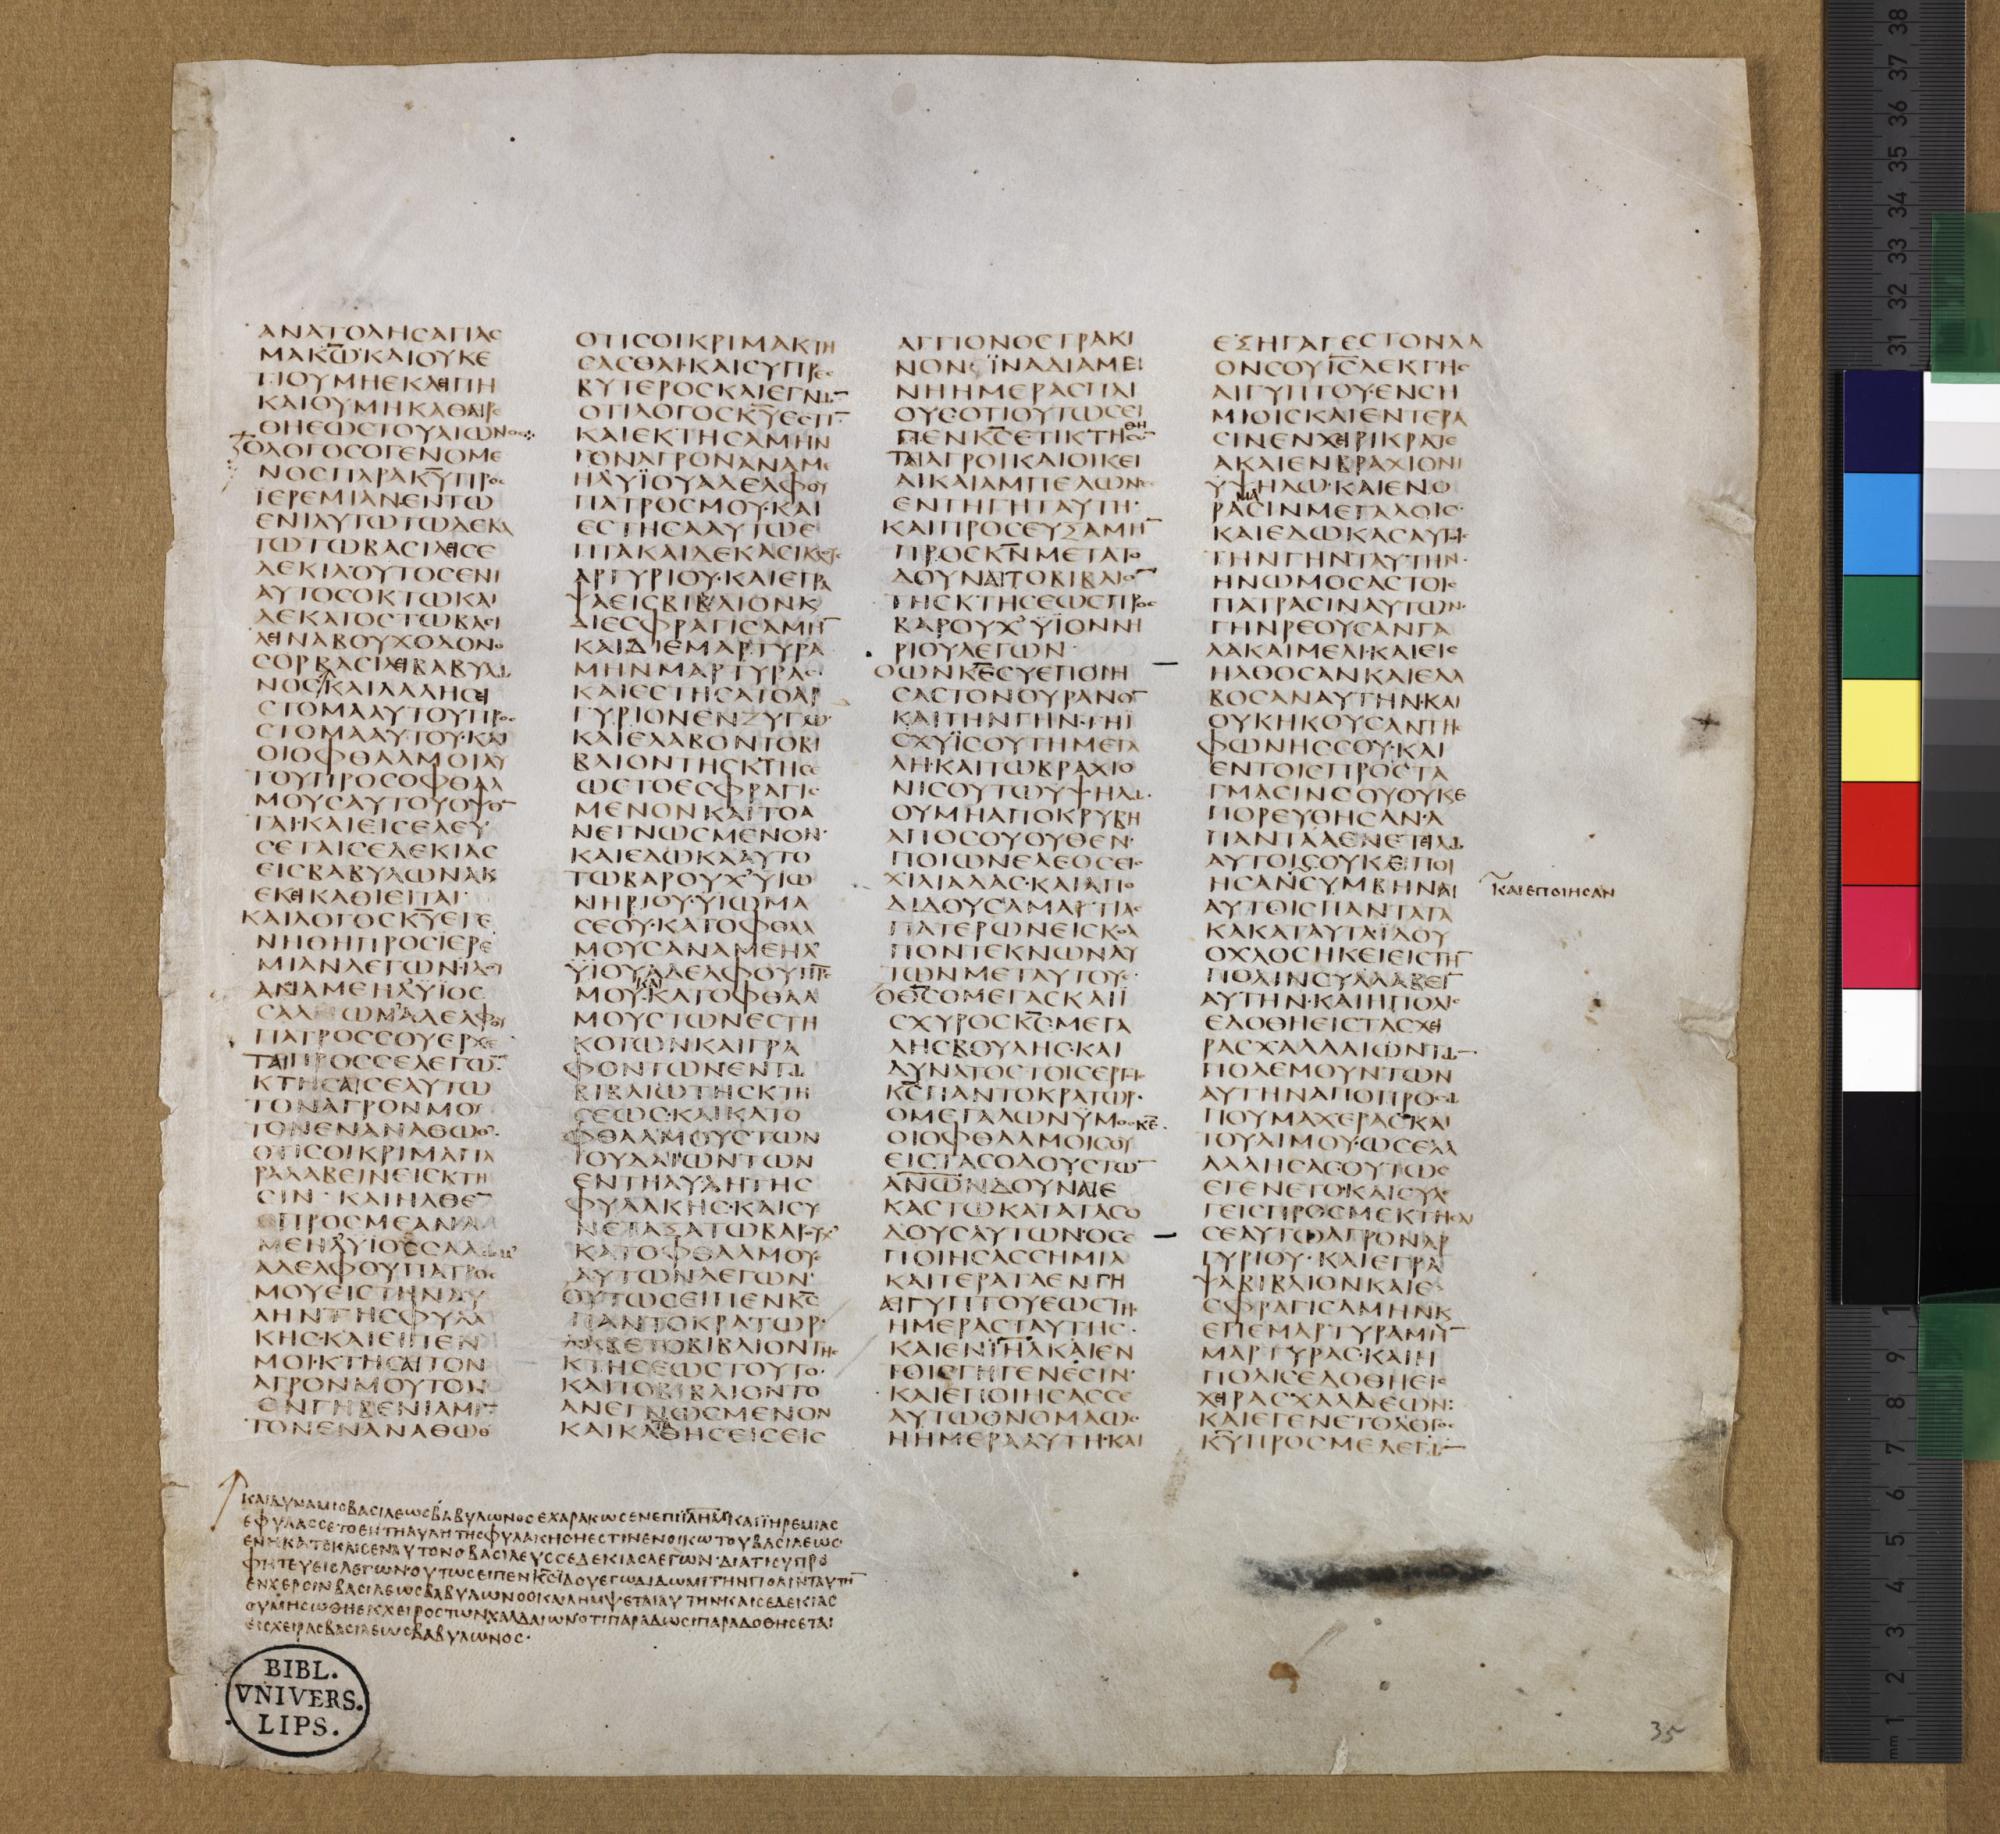 ΑΝΑΤΟΛΗϹΑΓΙΑϹ
ΜΑΚΩ̅ΚΑΙΟΥΚΕ
ΤΙΟΥΜΗΕΚΛΕΙΠΗ
ΚΑΙΟΥΜΗΚΑΘΑΙΡΕ
ΘΗΕΩϹΤΟΥΑΙΩΝΟϹ
ΟΛΟΓΟϹΟΓΕΝΟΜΕ
ΝΟϹΠΑΡΑΚ̅Υ̅ΠΡΟϹ
ΪΕΡΕΜΙΑΝΕΝΤΩ
ΕΝΙΑΥΤΩΤΩΔΕΚΑ
ΤΩΤΩΒΑϹΙΛΕΙϹΕ
ΔΕΚΙΑΟΥΤΟϹΕΝΙ
ΑΥΤΟϹΟΚΤΩΚΑΙ
ΔΕΚΑΤΟϹΤΩΒΑϹΙ
ΛΕΙΝΑΒΟΥΧΟΔΟΝΟ
ϹΟΡΒΑϹΙΛΕΙΒΑΒΥΛΩ
ΝΟϹΚΑΙΛΑΛΗϹΕΙ
ϹΤΟΜΑΑΥΤΟΥΠΡΟϹ
ϹΤΟΜΑΑΥΤΟΥΚΑΙ
ΟΙΟΦΘΑΛΜΟΙΑΥ
ΤΟΥΠΡΟϹΟΦΘΑΛ
ΜΟΥϹΑΥΤΟΥΟΨΟΝ
ΤΑΙ·ΚΑΙΕΙϹΕΛΕΥ
ϹΕΤΑΙϹΕΔΕΚΙΑϹ
ΕΙϹΒΑΒΥΛΩΝΑΚ
ΕΚΕΙΚΑΘΙΕΙΤΑΙ·
ΚΑΙΛΟΓΟϹΚ̅Υ̅ΕΓΕ
ΝΗΘΗΠΡΟϹΪΕΡΕ
ΜΙΑΝΛΕΓΩΝ·ΪΔΟΥ
ΑΝΑΜΕΗΛΥΪΟϹ
ϹΑΛΩΜΑΔΕΛΦΟΥ
ΠΑΤΡΟϹϹΟΥΕΡΧΕ
ΤΑΙΠΡΟϹϹΕΛΕΓΩΝ
ΚΤΗϹΑΙϹΕΑΥΤΩ
ΤΟΝΑΓΡΟΝΜΟΥ
ΤΟΝΕΝΑΝΑΘΩΘ·
ΟΤΙϹΟΙΚΡΙΜΑΠΑ
ΡΑΛΑΒΕΙΝΕΙϹΚΤΗ
ϹΙΝ·ΚΑΙΗΛΘΕΝ
ΠΡΟϹΜΕΑΝΑ
ΜΕΗΛΥΙΟϹϹΑΛΩΜ
ΑΔΕΛΦΟΥΠΑΤΡΟϹ
ΜΟΥΕΙϹΤΗΝΑΥ
ΛΗΝΤΗϹΦΥΛΑ
ΚΗϹ·ΚΑΙΕΙΠΕΝ
ΜΟΙ·ΚΤΗϹΑΙΤΟΝ
ΑΓΡΟΝΜΟΥΤΟΝ
ΕΝΓΗΒΕΝΙΑΜΙΝ
ΤΟΝΕΝΑΝΑΘΩΘ
ΟΤΙϹΟΙΚΡΙΜΑΚΤΗ
ϹΑϹΘΑΙ·ΚΑΙϹΥΠΡΕϹ
ΒΥΤΕΡΟϹΚΑΙΕΓΝΩΝ
ΟΤΙΛΟΓΟϹΚ̅Υ̅ΕϹΤΙΝ
ΚΑΙΕΚΤΗϹΑΜΗΝ
ΤΟΝΑΓΡΟΝΑΝΑΜΕ
ΗΛΥΪΟΥΑΔΕΛΦΟΥ
ΠΑΤΡΟϹΜΟΥ·ΚΑΙ
ΕϹΤΗϹΑΑΥΤΩΕ
ΠΤΑΚΑΙΔΕΚΑϹΙΚΛΟΥϹ
ΑΡΓΥΡΙΟΥ·ΚΑΙΕΓΡΑ
ΨΑΕΙϹΒΙΒΛΙΟΝΚ
ΑΙΕϹΦΡΑΓΙϹΑΜΗΝ
ΚΑΙΔΙΕΜΑΡΤΥΡΑ
ΜΗΝΜΑΡΤΥΡΑϹ·
ΚΑΙΕϹΤΗϹΑΤΟΑΡ
ΓΥΡΙΟΝΕΝΖΥΓΩ·
ΚΑΙΕΛΑΒΟΝΤΟΒΙ
ΒΛΙΟΝΤΗϹΚΤΗϹΕ
ΩϹΤΟΕϹΦΡΑΓΙϹ
ΜΕΝΟΝΚΑΙΤΟΑ
ΝΕΓΝΩϹΜΕΝΟΝ·
ΚΑΙΕΔΩΚΑΑΥΤΟ
ΤΩΒΑΡΟΥΧΥΙΩ
ΝΗΡΙΟΥ·ΥΙΩΜΑ
ϹΕΟΥ·ΚΑΤΟΦΘΑΛ
ΜΟΥϹΑΝΑΜΕΗΛ
ΥΪΟΥΑΔΕΛΦΟΥΠΡϹ
ΜΟΥ·ΚΑΙΚΑΤΟΦΘΑΛ
ΜΟΥϹΤΩΝΕϹΤΗ
ΚΟΤΩΝ·ΚΑΙΓΡΑ
ΦΟΝΤΩΝ·ΕΝΤΩ
ΒΙΒΛΙΩΤΗϹΚΤΗ
ϹΕΩϹ·ΚΑΙΚΑΤΟ
ΦΘΑΛΜΟΥϹΤΩΝ
ΙΟΥΔΑΙΩΝΤΩΝ
ΕΝΤΗΑΥΛΗΤΗϹ
ΦΥΛΑΚΗϹ·ΚΑΙϹΥ
ΝΕΤΑΞΑΤΩΒΑΡΟΥΧ
ΚΑΤΟΦΘΑΛΜΟΥϹ
ΑΥΤΩΝΛΕΓΩΝ·
ΟΥΤΩϹΕΙΠΕΝΚ̅Ϲ̅
ΠΑΝΤΟΚΡΑΤΩΡ·
ΛΑΒΕΤΟΒΙΒΛΙΟΝΤΗϹ
ΚΤΗϹΕΩϹΤΟΥΤΟ·
ΚΑΙΤΟΒΙΒΛΙΟΝΤΟ
ΑΝΕΓΝΩϹΜΕΝΟΝ
ΚΑΙΚΑΤΑΘΗϹΕΙϹΕΙϹ
ΑΓΓΙΟΝΟϹΤΡΑΚΙ
ΝΟΝ·ΪΝΑΔΙΑΜΕΙ
ΝΗΗΜΕΡΑϹΠΛΙ
ΟΥϹ·ΟΤΙΟΥΤΩϹΕΙ
ΠΕΝΚ̅Ϲ̅ΕΤΙΚΤΗΘΗϹΟΝ
ΤΑΙΑΓΡΟΙΚΑΙΟΙΚΕΙ
ΑΙΚΑΙΑΜΠΕΛΩΝΕϹ
ΕΝΤΗΓΗΤΑΥΤΗ·
ΚΑΙΠΡΟϹΕΥΞΑΜΗΝ
ΠΡΟϹΚ̅Ν̅ΜΕΤΑΤΟ
ΔΟΥΝΑΙΤΟΒΙΒΛΙΟΝ
ΤΗϹΚΤΗϹΕΩϹΠΡΟϹ
ΒΑΡΟΥΧΥΪΟΝΝΗ
ΡΙΟΥΛΕΓΩΝ·
ΟΩΝΚ̅Ε̅ϹΥΕΠΟΙΗ
ϹΑϹΤΟΝΟΥΡΑΝΟΝ
ΚΑΙΤΗΝΓΗΝ·ΤΗΪ
ϹΧΥΪϹΟΥΤΗΜΕΓΑ
ΛΗ·ΚΑΙΤΩΒΡΑΧΙΟ
ΝΙϹΟΥΤΩΥΨΗΛΩ·
ΟΥΜΗΑΠΟΚΡΥΒΗ
ΑΠΟϹΟΥΟΥΘΕΝ·
ΠΟΙΩΝΕΛΕΟϹΕΙϹ
ΧΙΛΙΑΔΑϹ·ΚΑΙΑΠΟ
ΔΙΔΟΥϹΑΜΑΡΤΙΑϹ
ΠΑΤΕΡΩΝΕΙϹΚΟΛ
ΠΟΝΤΕΚΝΩΝΑΥ
ΤΩΝΜΕΤΑΥΤΟΥϹ·
Ο̅Θ̅Ϲ̅ΟΜΕΓΑϹΚΑΙΪ
ϹΧΥΡΟϹΚ̅Ϲ̅ΜΕΓΑ
ΛΗϹΒΟΥΛΗϹ·ΚΑΙ
ΔΥΝΑΤΟϹΤΟΙϹΕΡΓΟΙϹ
Κ̅Ϲ̅ΠΑΝΤΟΚΡΑΤΩΡ·
ΟΜΕΓΑΛΩΝΥΜΟϹΚ̅Ε̅·
ΟΙΟΦΘΑΛΜΟΙϹΟΥ
ΕΙϹΤΑϹΟΔΟΥϹΤΩΝ
ΑΝ̅Ω̅Ν̅ΔΟΥΝΑΙΕ
ΚΑϹΤΩΚΑΤΑΤΑϹΟ
ΔΟΥϹΑΥΤΩΝ·ΟϹΕ
ΠΟΙΗϹΑϹϹΗΜΙΑ
ΚΑΙΤΕΡΑΤΑΕΝΓΗ
ΑΙΓΥΠΤΟΥΕΩϹΤΗϹ
ΗΜΕΡΑϹΤΑΥΤΗϹ·
ΚΑΙΕΝΪ̅Η̅Λ̅ΚΑΙΕΝ
ΤΟΙϹΓΗΓΕΝΕϹΙΝ·
ΚΑΙΕΠΟΙΗϹΑϹϹΕ
ΑΥΤΩΟΝΟΜΑΩϹ
ΗΗΜΕΡΑΑΥΤΗ·ΚΑΙ
ΕΞΗΓΑΓΕϹΤΟΝΛΑ
ΟΝϹΟΥΙ̅Ϲ̅Λ̅ΕΚΓΗϹ
ΑΙΓΥΠΤΟΥ·ΕΝϹΗ
ΜΙΟΙϹΚΑΙΕΝΤΕΡΑ
ϹΙΝΕΝΧΕΙΡΙΚΡΑΤΕ
ΑΚΑΙΕΝΒΡΑΧΙΟΝΙ
ΥΨΗΛΩ·ΚΑΙΕΝΟ
ΡΑΜΑϹΙΝΜΕΓΑΛΟΙϹ·
ΚΑΙΕΔΩΚΑϹΑΥΤΟΙϹ
ΤΗΝΓΗΝΤΑΥΤΗΝ·
ΗΝΩΜΟϹΑϹΤΟΙϹ
ΠΑΤΡΑϹΙΝΑΥΤΩΝ·
ΓΗΝΡΕΟΥϹΑΝΓΑ
ΛΑΚΑΙΜΕΛΙ·ΚΑΙΕΙϹ
ΗΛΘΟϹΑΝΚΑΙΕΛΑ
ΒΟϹΑΝΑΥΤΗΝ·ΚΑΙ
ΟΥΚΗΚΟΥϹΑΝΤΗϹ
ΦΩΝΗϹϹΟΥ·ΚΑΙ
ΕΝΤΟΙϹΠΡΟϹΤΑ
ΓΜΑϹΙΝϹΟΥΟΥΚΕ
ΠΟΡΕΥΘΗϹΑΝ·Α
ΠΑΝΤΑΑΕΝΕΤΕΙΛΩ
ΑΥΤΟΙϹΟΥΚΕΠΟΙ
ΗϹΑΝϹΥΜΒΗΝΑΙ
ΚΑΙΕΠΟΙΗϹΑΝ
ΑΥΤΟΙϹΠΑΝΤΑΤΑ
ΚΑΚΑΤΑΥΤΑ·ΪΔΟΥ
ΟΧΛΟϹΗΚΕΙΕΙϹΤΗΝ
ΠΟΛΙΝϹΥΛΛΑΒΕΙΝ
ΑΥΤΗΝ·ΚΑΙΗΠΟΛΙϹ
ΕΔΟΘΗΕΙϹΤΑϹΧΕΙ
ΡΑϹΧΑΛΔΑΙΩΝΤΩΝ
ΠΟΛΕΜΟΥΝΤΩΝ
ΑΥΤΗΝΑΠΟΠΡΟϹΩ
ΠΟΥΜΑΧΕΡΑϹΚΑΙ
ΤΟΥΛΙΜΟΥ·ΩϹΕΛΑ
ΛΗϹΑϹΟΥΤΩϹ
ΕΓΕΝΕΤΟ·ΚΑΙϹΥΛΕ
ΓΕΙϹΠΡΟϹΜΕΚΤΗϹΑΙ
ϹΕΑΥΤΩΑΓΡΟΝΑΡ
ΓΥΡΙΟΥ·ΚΑΙΕΓΡΑ
ΨΑΒΙΒΛΙΟΝΚΑΙΕ
ϹΦΡΑΓΙϹΑΜΗΝΚ
ΕΠΕΜΑΡΤΥΡΑΜΗΝ
ΜΑΡΤΥΡΑϹ·ΚΑΙΗ
ΠΟΛΙϹΕΔΟΘΗΕΙϹ
ΧΕΙΡΑϹΧΑΛΔΕΩΝ:
ΚΑΙΕΓΕΝΕΤΟΛΟΓΟϹ
Κ̅Υ̅ΠΡΟϹΜΕΛΕΓΩΝ
ΚΑΙΔΥΝΑΜΙϹΒΑϹΙΛΕΩϹΒΑΒΥΛΩΝΟϹΕΧΑΡΑΚΩϹΕΝΕΠΙΪΛΗΜΚΑΙΪΗΡΕΜΙΑϹ
ΕΦΥΛΑϹϹΕΤΟΕΝΤΗΑΥΛΗΤΗϹΦΥΛΑΚΗϹΗΕϹΤΙΝΕΝΟΙΚΩΤΟΥΒΑϹΙΛΕΩϹ·
ΕΝΗΚΑΤΕΚΛΙϹΕΝΑΥΤΟΝΟΒΑϹΙΛΕΥϹϹΕΔΕΚΙΑϹΛΕΓΩΝ·ΔΙΑΤΙϹΥΠΡΟ
ΦΗΤΕΥΕΙϹΛΕΓΩΝ·ΟΥΤΩϹΕΙΠΕΝΚ̅Ϲ̅ΪΔΟΥΕΓΩΔΙΔΩΜΙΤΗΝΠΟΛΙΝΤΑΥΤΗΝ
ΕΝΧΕΡϹΙΝΒΑϹΙΛΕΩϹΒΑΒΥΛΩΝΟϹΚΑΙΛΗΜΨΕΤΑΙΑΥΤΗΝΚΑΙϹΕΔΕΚΙΑϹ
ΟΥΜΗϹΩΘΗΕΚΧΕΙΡΟϹΤΩΝΧΑΛΔΑΙΩΝΟΤΙΠΑΡΑΔΩϹΙΠΑΡΑΔΟΘΗϹΕΤΑΙ
ΕΙϹΧΕΙΡΑϹΒΑϹΙΛΕΩϹΒΑΒΥΛΩΝΟϹ·
BIBL.
VNIVERS.
LIPS.
35